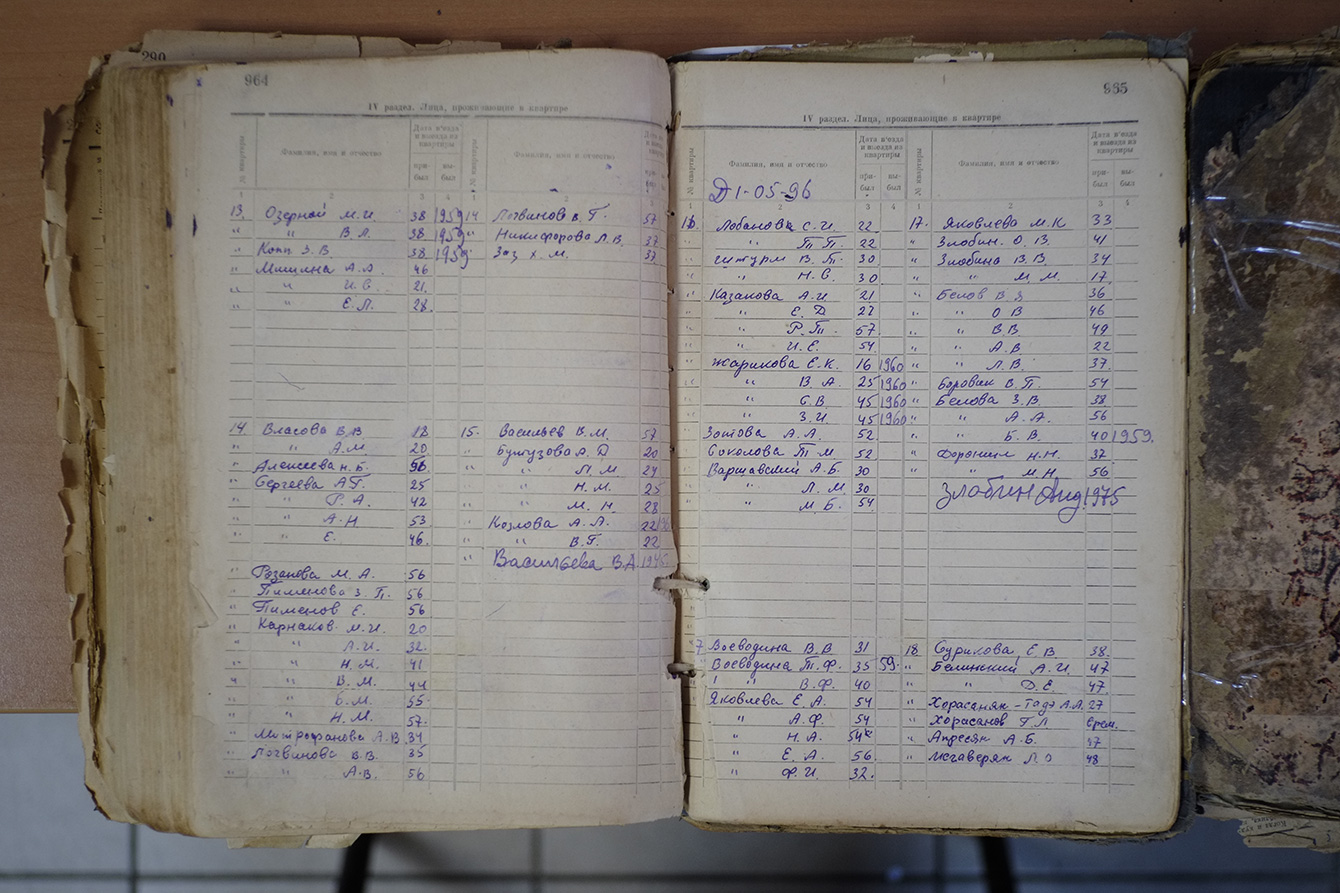 290
964
IV раздел. Лица, проживающие в квартире
№ квартиры
Фамилия, имя и отчество
Дата в'езда и выезда из квартиры
при-был
вы-был
№ квартиры
Фамилия, имя и отчество
1 2 3 4 1 2 3
13. Озерной М.И. 38 1959
" " В.Л. 38 1959
" Копп З.В. 38 1959
" Мишина А.А. 46
" " И.С. 21.
" " Е.Л. 28.
14 Логвинов В.Г. 57
" Никифорова Л.В. 37
" Заз Х.М. 37
14. Власова В.В. 18
" " А.М. 20
" Алексеева Н.Б. 56
" Сергеева А.Г. 25
" " Р.А. 42
" " А.Н 53
" " Е. 46.
Розанова М.А. 56
" Пименова З.П. 56
" Пименов Е. 56
" Карнаков М.И. 20
" " Л.И. 32.
" " Н.М. 41
" " В.М. 44
" " Б.М. 55
" " Н.М. 57.
" Митрофанова А.В. 34
" Логвинова В.В. 35
" " А.В. 56
15. Васильев В.М. 57
" Бунгузова А.Д 20
" " П.М. 24
" " Н.М. 25
" " М.Н. 28
" Козлова А.Л. 22
" " В.Г. 22
" Васильева В.А.
985
IV раздел. Лица, проживающие в квартире
№ квартиры
Фамилия, имя и отчество
Дата в'езда и выезда из квартиры
при-был
вы-был
№ квартиры
Фамилия, имя и отчество
Дата в'езда и выезда из квартиры
при-был
вы-был
Д 1-05-96
1 2 3 4 1 2 3 4
16. Лобанова С.И. 22
" " П.П. 22
" Штурм В.П. 30
" " Н.С. 30
" Казакова А.И. 21
" " Е.Д 27
" " Р.П. 57.
" " И.Е. 54.
" Жарикова Е.К. 16 1960
" " В.А. 25 1960
" " С.В. 45 1960
" " З.И. 45 1960
" Зотова А.А. 52
" Соколова Т.М. 52
" Варшавский А.Б. 30
" " Л.М 30
" " М.Б. 54
17. Яковлева М.К 33
" Злобин О.В. 41
" Злобина В.В. 34
" " М.М. 17.
" Белов В.Я 36
" " О.В 46
" " В.В. 49
" " А.В. 22
" " Л.В. 37.
" Боровик В.П. 54
" Белова З.В. 38
" " А.А. 56
" " Б.В. 40 1959.
" Форонин Н.Н. 37
" " М.Н. 56
Злобин Анд. 1975
7 Воеводина В.В 31
" Воеводина Т.Ф. 35 59.
" " В.Ф. 40
Яковлева Е.А. 54
" " А.Ф. 54
" " Н.А. 54
" " Е.А. 56
" " Ф.И. 32.
18. Сурикова Е.В 38.
" Белинский А.И. 47
" " Д.Е. 47.
" А.Л. 27
" Хорасанов Г.Л врем.
" Апресян А.Б. 37
" Мегаверян Л.О 48